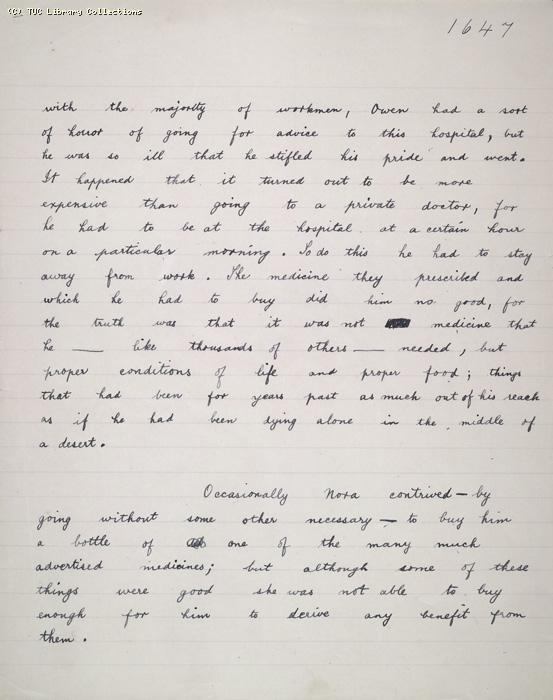 (C) TUC Library Collections
1647
with the majority of workmen, Owen had a sort
of horror of going for advice to this hospital, but
he was so ill that he stifled his pride and went.
It happened that it turned out to be more
expensive than going to a private doctor, for
he had to be at the hospital at a certain hour
on a particular morning. To do this he had to stay
away from work. The medicine they prescribed and
which he had to buy did him no good, for
the truth was that it was not medicine that
he — like thousands of others — needed, but
proper conditions of life and proper food; things
that had been for years past as much out of his reach
as if he had been dying alone in the middle of
a desert.
Occasionally Nora contrived — by
going without some other necessary — to buy him
a bottle of one of the many much
advertised medicines; but although some of these
things were good she was not able to buy
enough for him to derive any benefit from
them.